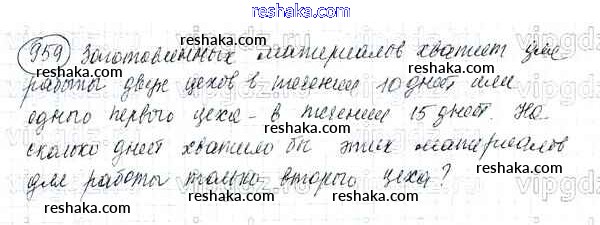 reshaka.com
959) Заготовленных материалов хватит для
работы двух цехов в течении 10 дней или
одного первого цеха - в течении 15 дней. На
сколько дней хватило бы этих материалов
для работы только второго цеха?
reshaka.com
reshaka.com
reshaka.com
reshaka.com
reshaka.com
reshaka.com
reshaka.com
reshaka.com